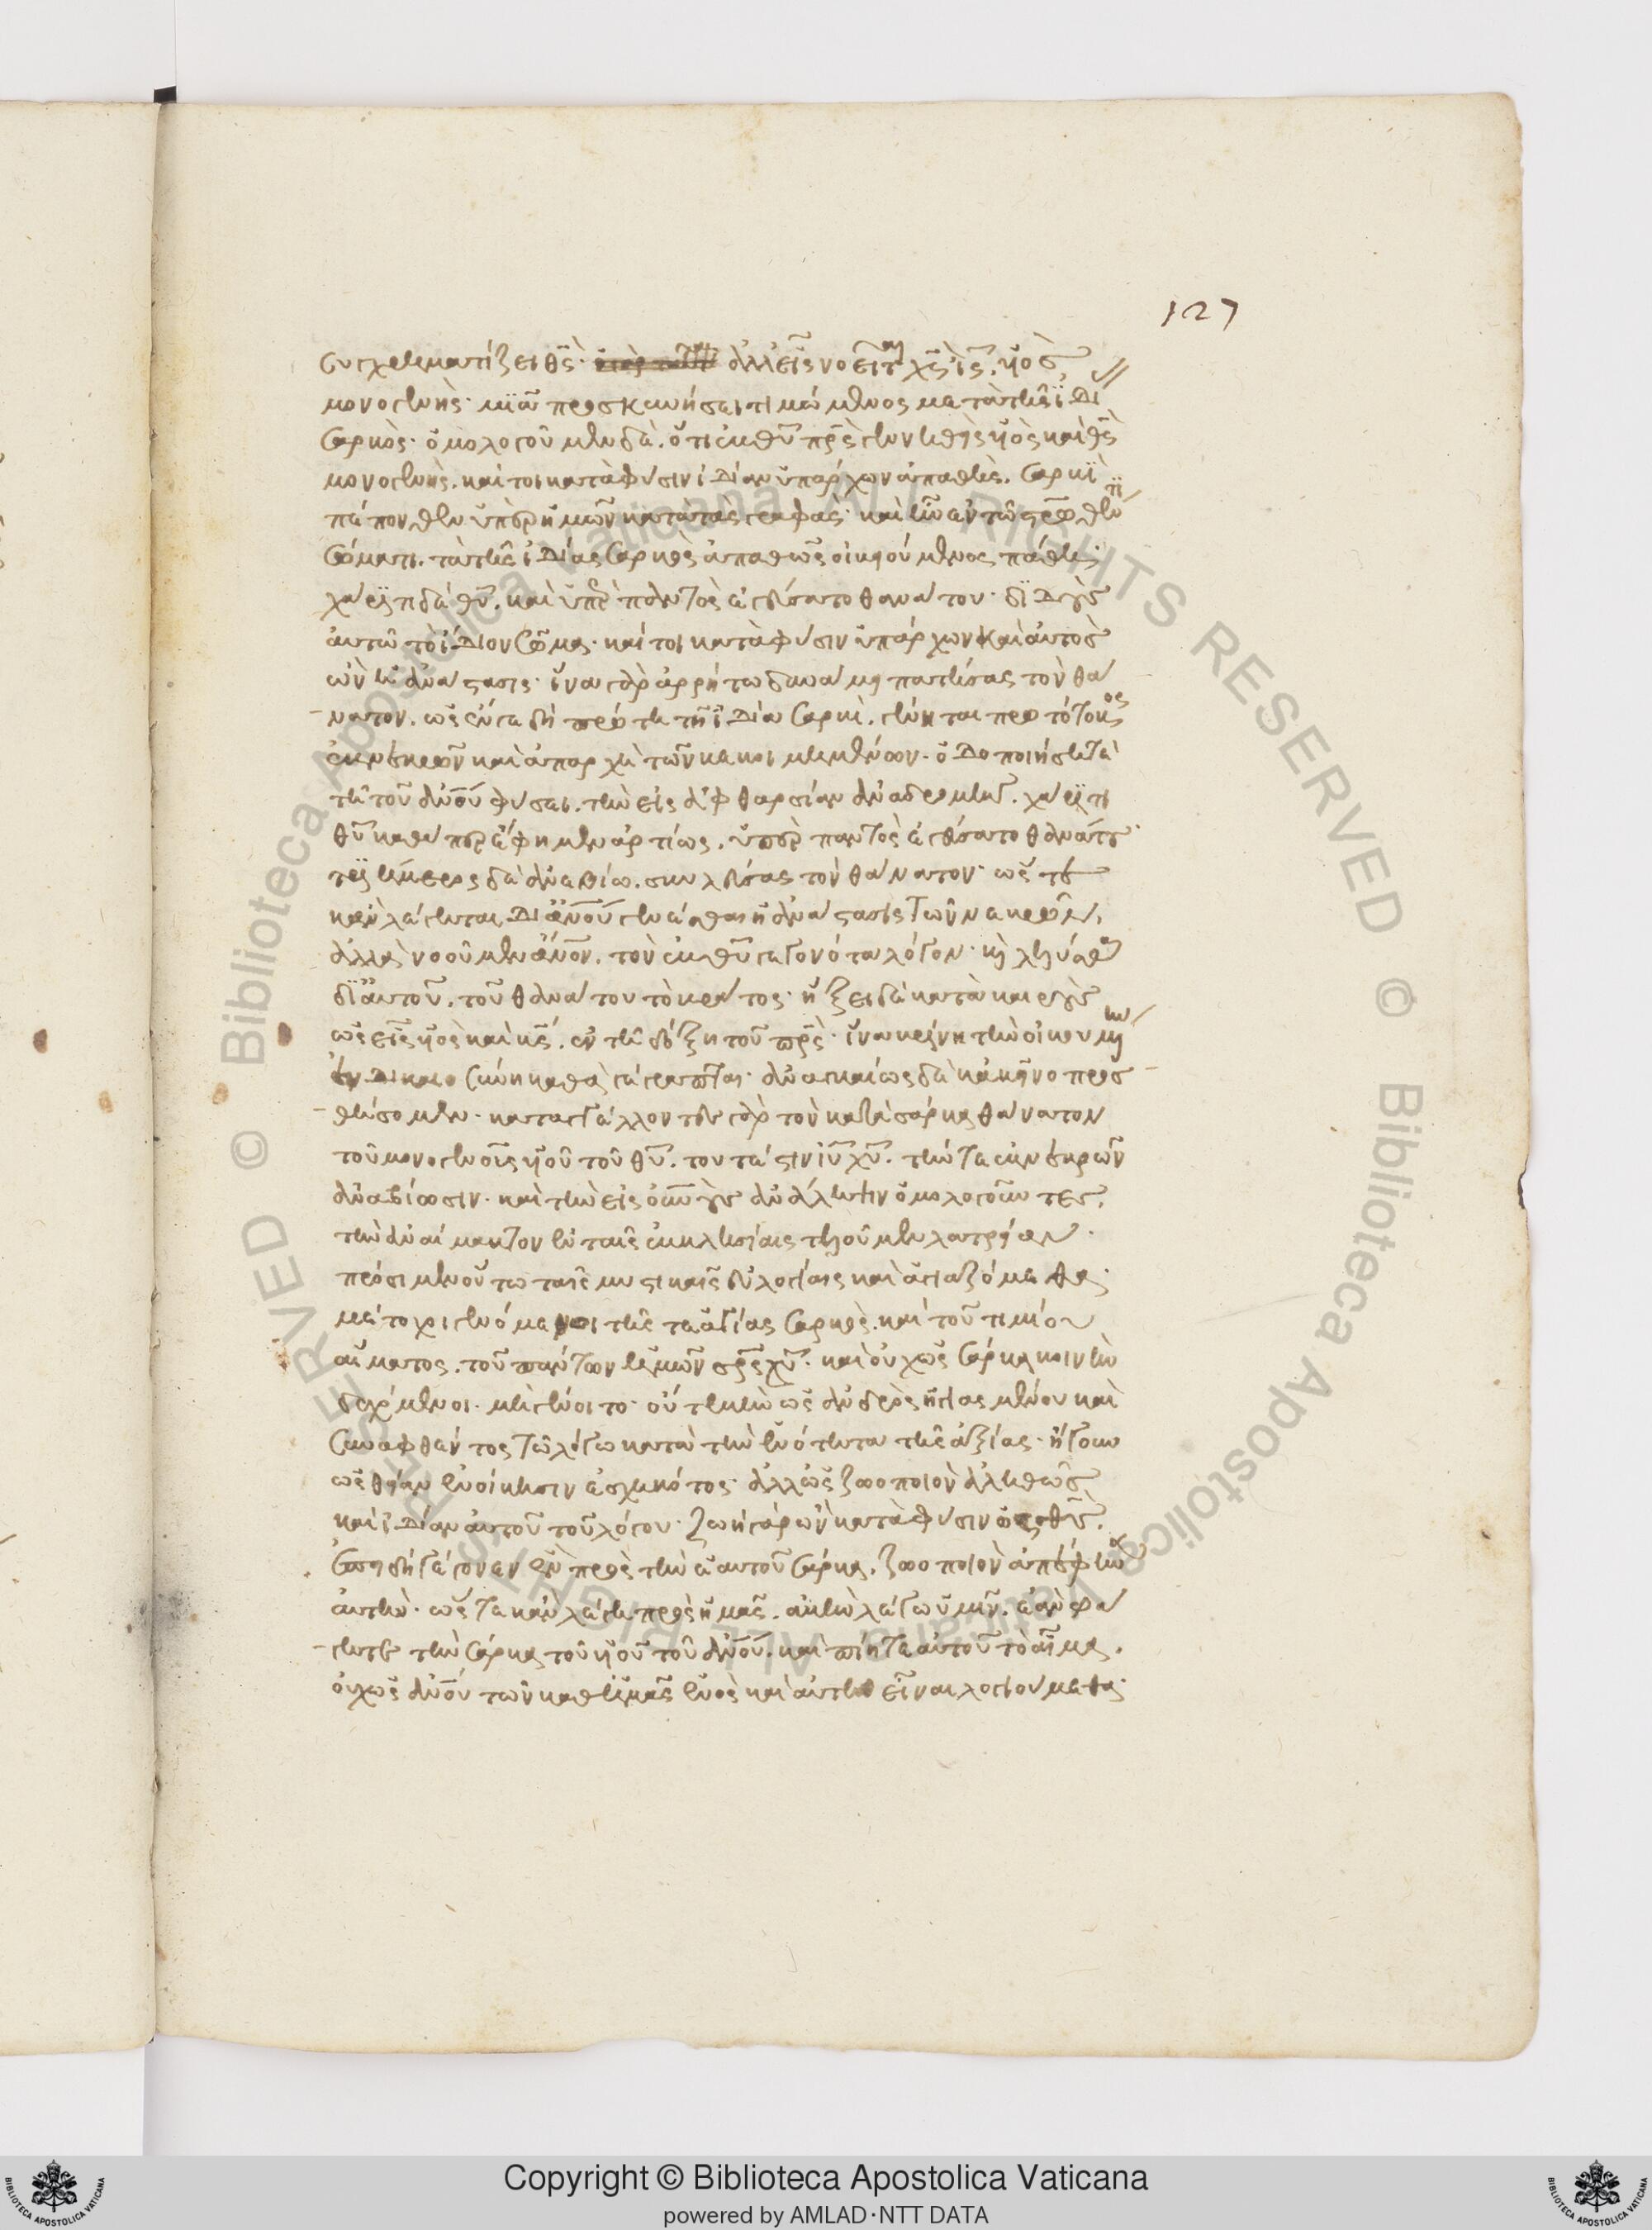 127
συγχρηματίζει θς̄· ἀλλ' εἷς νοεῖται χς̄ ις̄, υἱὸς
μονογενὴς· μιᾶ προσκυνήσει τιμώμενος μετὰ τῆς ἰδί
σαρκὸς· ὁμολογοῦμεν δὲ. ὅτι ἐκ θῡ πρς̄ γεννηθεὶς υἱὸς καὶ θς̄
μονογενὴς. καίτοι κατὰ φύσιν ἰδίαν ὑπάρχων ἀπαθὴς. σαρκὶ
πέπονθεν ὑπὲρ ἡμῶν κατὰ τὰς γραφάς· καὶ ἦν ἐν τῶ σταυρωθέντι
σώματι. τὰ τῆς ἰδίας σαρκὸς ἀπαθῶς οἰκειούμενος πάθη·
χάριτι δὲ θῡ. καὶ ὑπὲρ παντὸς ἐγεύσατο θανάτου· διδοὺς
αὐτῶ τὸ ἴδιον σῶμα· καίτοι κατὰ φύσιν ὑπάρχων ζωὴ καὶ αὐτὸς
ὢν ἡ ἀνάστασις· ἵνα γὰρ ἀρρήτω δυνάμει πατήσας τὸν θά
νατον. ὡς ἔν γε δὴ πρώτη τῆ ἰδία σαρκὶ. γένηται πρωτότοκος
ἐκ νεκρῶν καὶ ἀπαρχὴ τῶν κεκοιμημένων· ὁδοποιήση τε
τῆ τοῦ ἀνου φύσει. τὴν εἰς ἀφθαρσίαν ἀναδρομὴν. χάριτι
θῡ καθάπερ ἔφημεν ἀρτίως. ὑπὲρ παντὸς ἐγεύσατο θανάτου·
τριήμερος δὲ ἀνεβίω. σκυλεύσας τὸν θάνατον· ὥστε
κἂν λέγηται δι' ἀνου γενέσθαι ἡ ἀνάστασις τῶν νεκρῶν,
ἀλλὰ νοοῦμεν ἀνον. τὸν ἐκ θῡ γεγονότα λόγον· καὶ λελύσθαι
δι' αὐτοῦ. τοῦ θανάτου τὸ κράτος· ἥξει δὲ κατὰ καιροὺς
ὡς εἷς υἱὸς καὶ κς̄. ἐν τῆ δόξη τοῦ πρς̄· ἵνα κρίνη τὴν οἰκουμένην
ἐν δικαιοσύνη καθὰ γέγραπται· ἀναγκαίως δὲ κἀκεῖνο προσ
θήσομεν· καταγγέλλοντες γὰρ τὸν κατὰ σάρκα θάνατον
τοῦ μονογενοῦς υἱοῦ τοῦ θῡ. τουτέστιν ιῡ χῡ. τήν τε ἐκ νεκρῶν
ἀναβίωσιν· καὶ τὴν εἰς οὐνοὺς ἀνάληψιν ὁμολογοῦντες.
τὴν ἀναίμακτον ἐν ταῖς ἐκκλησίαις τελοῦμεν λατρείαν·
πρόσιμεν οὕτω ταῖς μυστικαῖς εὐλογίαις καὶ ἁγιαζόμεθα·
μέτοχοι γενόμενοι τῆς τε ἁγίας σαρκὸς. καὶ τοῦ τιμίου
αἵματος. τοῦ πάντων ἡμῶν σρς̄ χῡ· καὶ οὐχ ὡς σάρκα κοινὴν
δεχόμενοι. μὴ γένοιτο· οὔτε μὴν ὡς ἀνδρὸς ἡγιασμένου καὶ
συναφθέντος τῶ λόγω κατὰ τὴν ἑνότητα τῆς ἀξίας· ἤγουν
ὡς θείαν ἐνοίκησιν ἐσχηκότος· ἀλλ' ὡς ζωοποιὸν ἀληθῶς
καὶ ἰδίαν αὐτοῦ τοῦ λόγου· ζωὴ γὰρ ὢν κατὰ φύσιν ὡς θς̄.
ἐπειδὴ γέγονεν ἓν πρὸς τὴν ἑαυτοῦ σάρκα. ζωοποιὸν ἀπέφηνεν
αὐτὴν· ὥστε κἂν λέγη πρὸς ἡμᾶς. ἀμὴν λέγω ὑμῖν. ἐὰν φά
γητε τὴν σάρκα τοῦ υἱοῦ τοῦ ἀνου. καὶ πίητε αὐτοῦ τὸ αἷμα.
οὐχ ὡς ἀνου τῶν καθ' ἡμᾶς ἑνὸς καὶ αὐτὴν εἶναι λογιούμεθα·
Copyright © Biblioteca Apostolica Vaticana
powered by AMLAD·NTT DATA